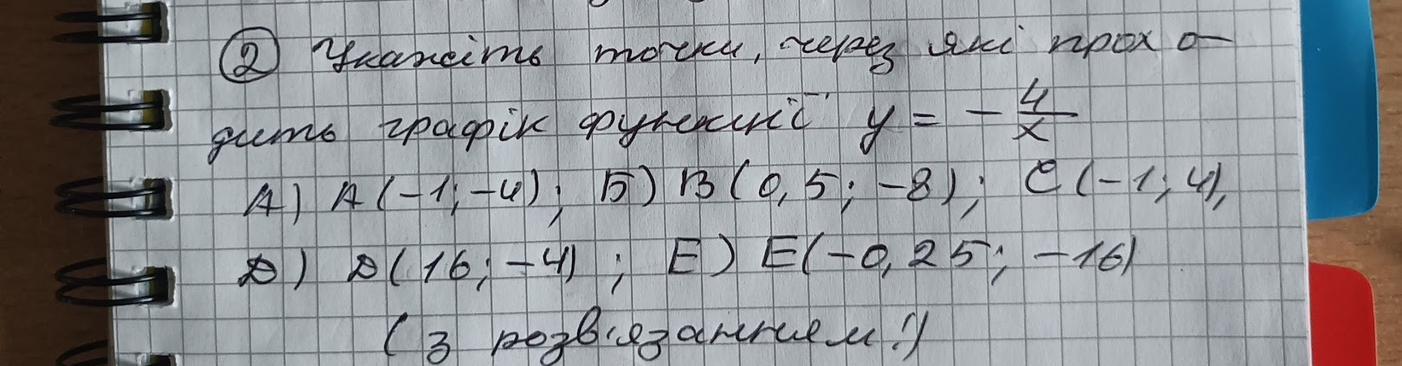 ② Укажіть точки, через які прохо-
дить графік функції y = - 4/x
А) A(-1; -4); Б) B(0,5; -8); C(-1; 4),
D) D(16; -4); E) E(-0,25; -16)
(з розв'язанням!)